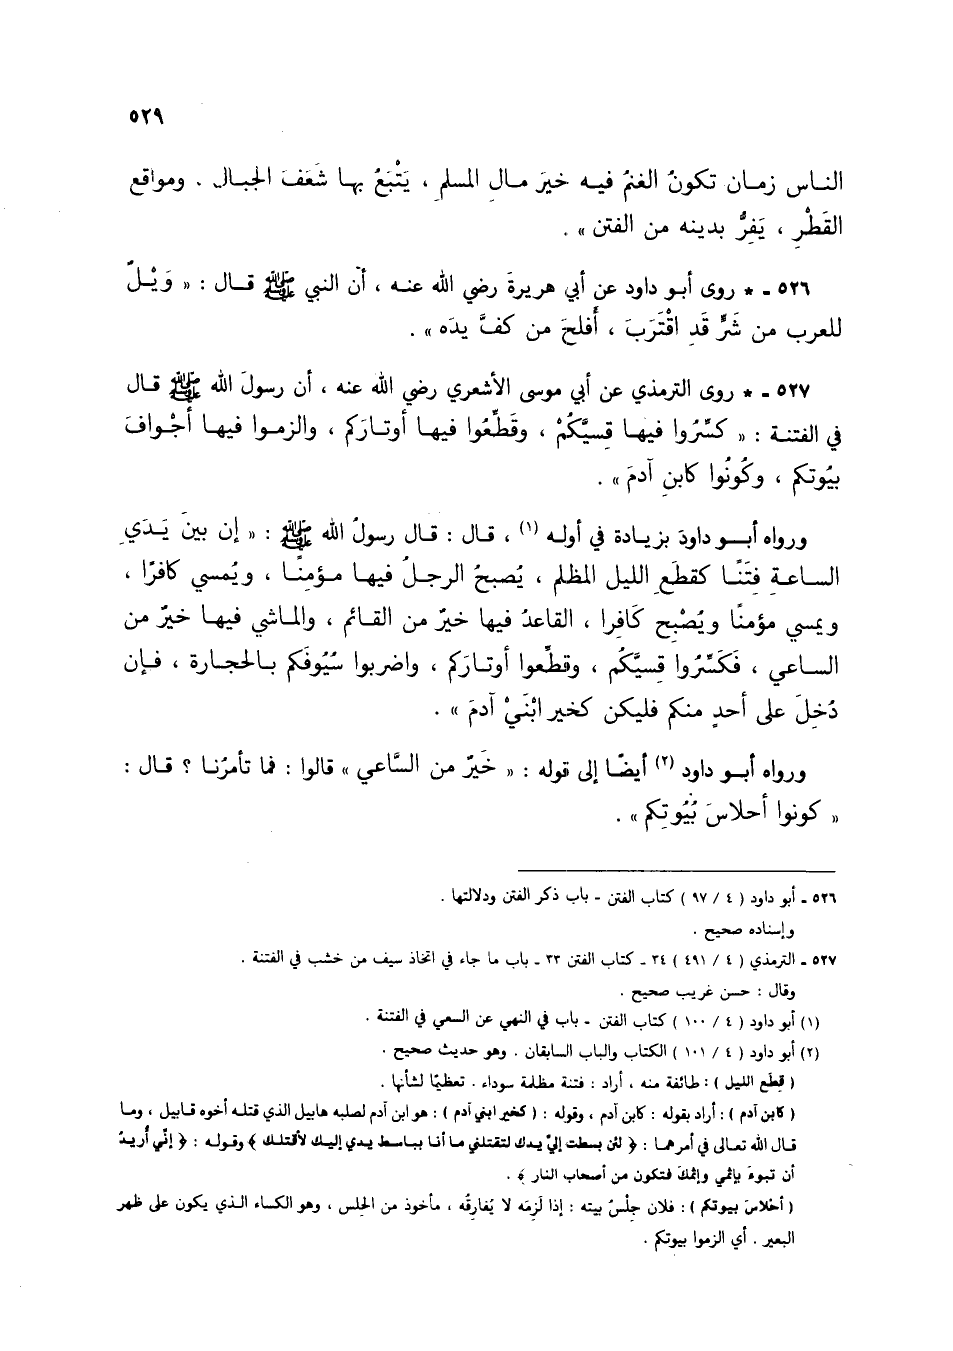 ٥٢٩
النـاس زمـان تكونُ الغنمُ فيـه خيرَ مـال المسلمِ ، يَتْبَعُ بهـا شَعَفَ الجبـال . ومواقع
القَطْرِ ، يَفِرُّ بدينه من الفتن » .
٥٢٦ ـ * روى أبـو داود عن أبي هريرةَ رضي الله عنـه ، أن النبي ﷺ قـال : « وَيْـلٌ
للعرب من شَرٍّ قَدِ اقْتَرَبَ ، أَفلحَ من كفَّ يدَه » .
٥٢٧ ـ * روى الترمذي عن أبي موسى الأشعري رضي الله عنه ، أن رسولَ الله ﷺ قـال
في الفتنـة : « كسِّرُوا فيهـا قِسِيَّكُمْ ، وقَطِّعُوا فيهـا أوتـارَكم ، والزمـوا فيهـا أجْوافَ
بيُوتكم ، وكُونُوا كابنِ آدمَ » .
ورواه أبـو داودَ بزيـادة في أولـه (١) ، قـال : قـال رسولُ الله ﷺ : « إن بينَ يَـدَيِ
السـاعـةِ فِتَنًـا كقطَعِ الليل المظلم ، يُصبحُ الرجلُ فيهـا مـؤمنًـا ، ويُمسي كافرًا ،
ويمسي مؤمنًا ويُصْبح كَافِرا ، القاعدُ فيها خيرٌ من القـائم ، والمـاشي فيهـا خيرٌ من
السـاعي ، فَكَسِّرُوا قِسِيَّكُم ، وقطِّعوا أوتـارَكم ، واضربوا سُيُوفَكم بـالحجارة ، فـإن
دُخِلَ على أحدٍ منكم فليكن كخير ابْنَيْ آدمَ » .
ورواه أبـو داود (٢) أيضًـا إلى قوله : « خَيرٌ من السَّاعي » قالوا : فما تأمرُنـا ؟ قـال :
« كونوا أحلاسَ بُيُوتِكم » .
٥٢٦ ـ أبو داود ( ٤ / ٩٧ ) كتاب الفتن ـ باب ذكر الفتن ودلالتها .
وإسناده صحيح .
٥٢٧ ـ الترمذي ( ٤ / ٤٩١ ) ٣٤ ـ كتاب الفتن ٣٣ ـ باب ما جاء في اتخاذ سيف من خشب في الفتنة .
وقال : حسن غريب صحيح .
(١) أبو داود ( ٤ / ١٠٠ ) كتاب الفتن ـ باب في النهي عن السعي في الفتنة .
(٢) أبو داود ( ٤ / ١٠١ ) الكتاب والباب السابقان . وهو حديث صحيح .
( قِطَع الليل ) : طائفة منه ، أراد : فتنة مظلمة سوداء . تعظيمًا لشأنها .
( كابن آدم ) : أراد بقوله : كابن آدم ، وقوله : ( كخير ابني آدم ) : هو ابن آدم لصلبه هابيل الذي قتله أخوه قـابيل ، ومـا
قال الله تعالى في أمرهمـا : ﴿ لئن بسطت إليَّ يدك لتقتلني ما أنا بباسط يدي إليـك لأقتلـك ﴾ وقولـه : ﴿ إنّي أُريـدُ
أن تبوءَ بإثمي وإثمكَ فتكون من أصحاب النار ﴾ .
( أحْلاسَ بيوتكم ) : فلان حِلْسُ بيته : إذا لَزِمَه لا يُفارِقُه ، مأخوذ من الحِلس ، وهو الكساء الـذي يكون على ظهر
البعير . أي الزموا بيوتكم .